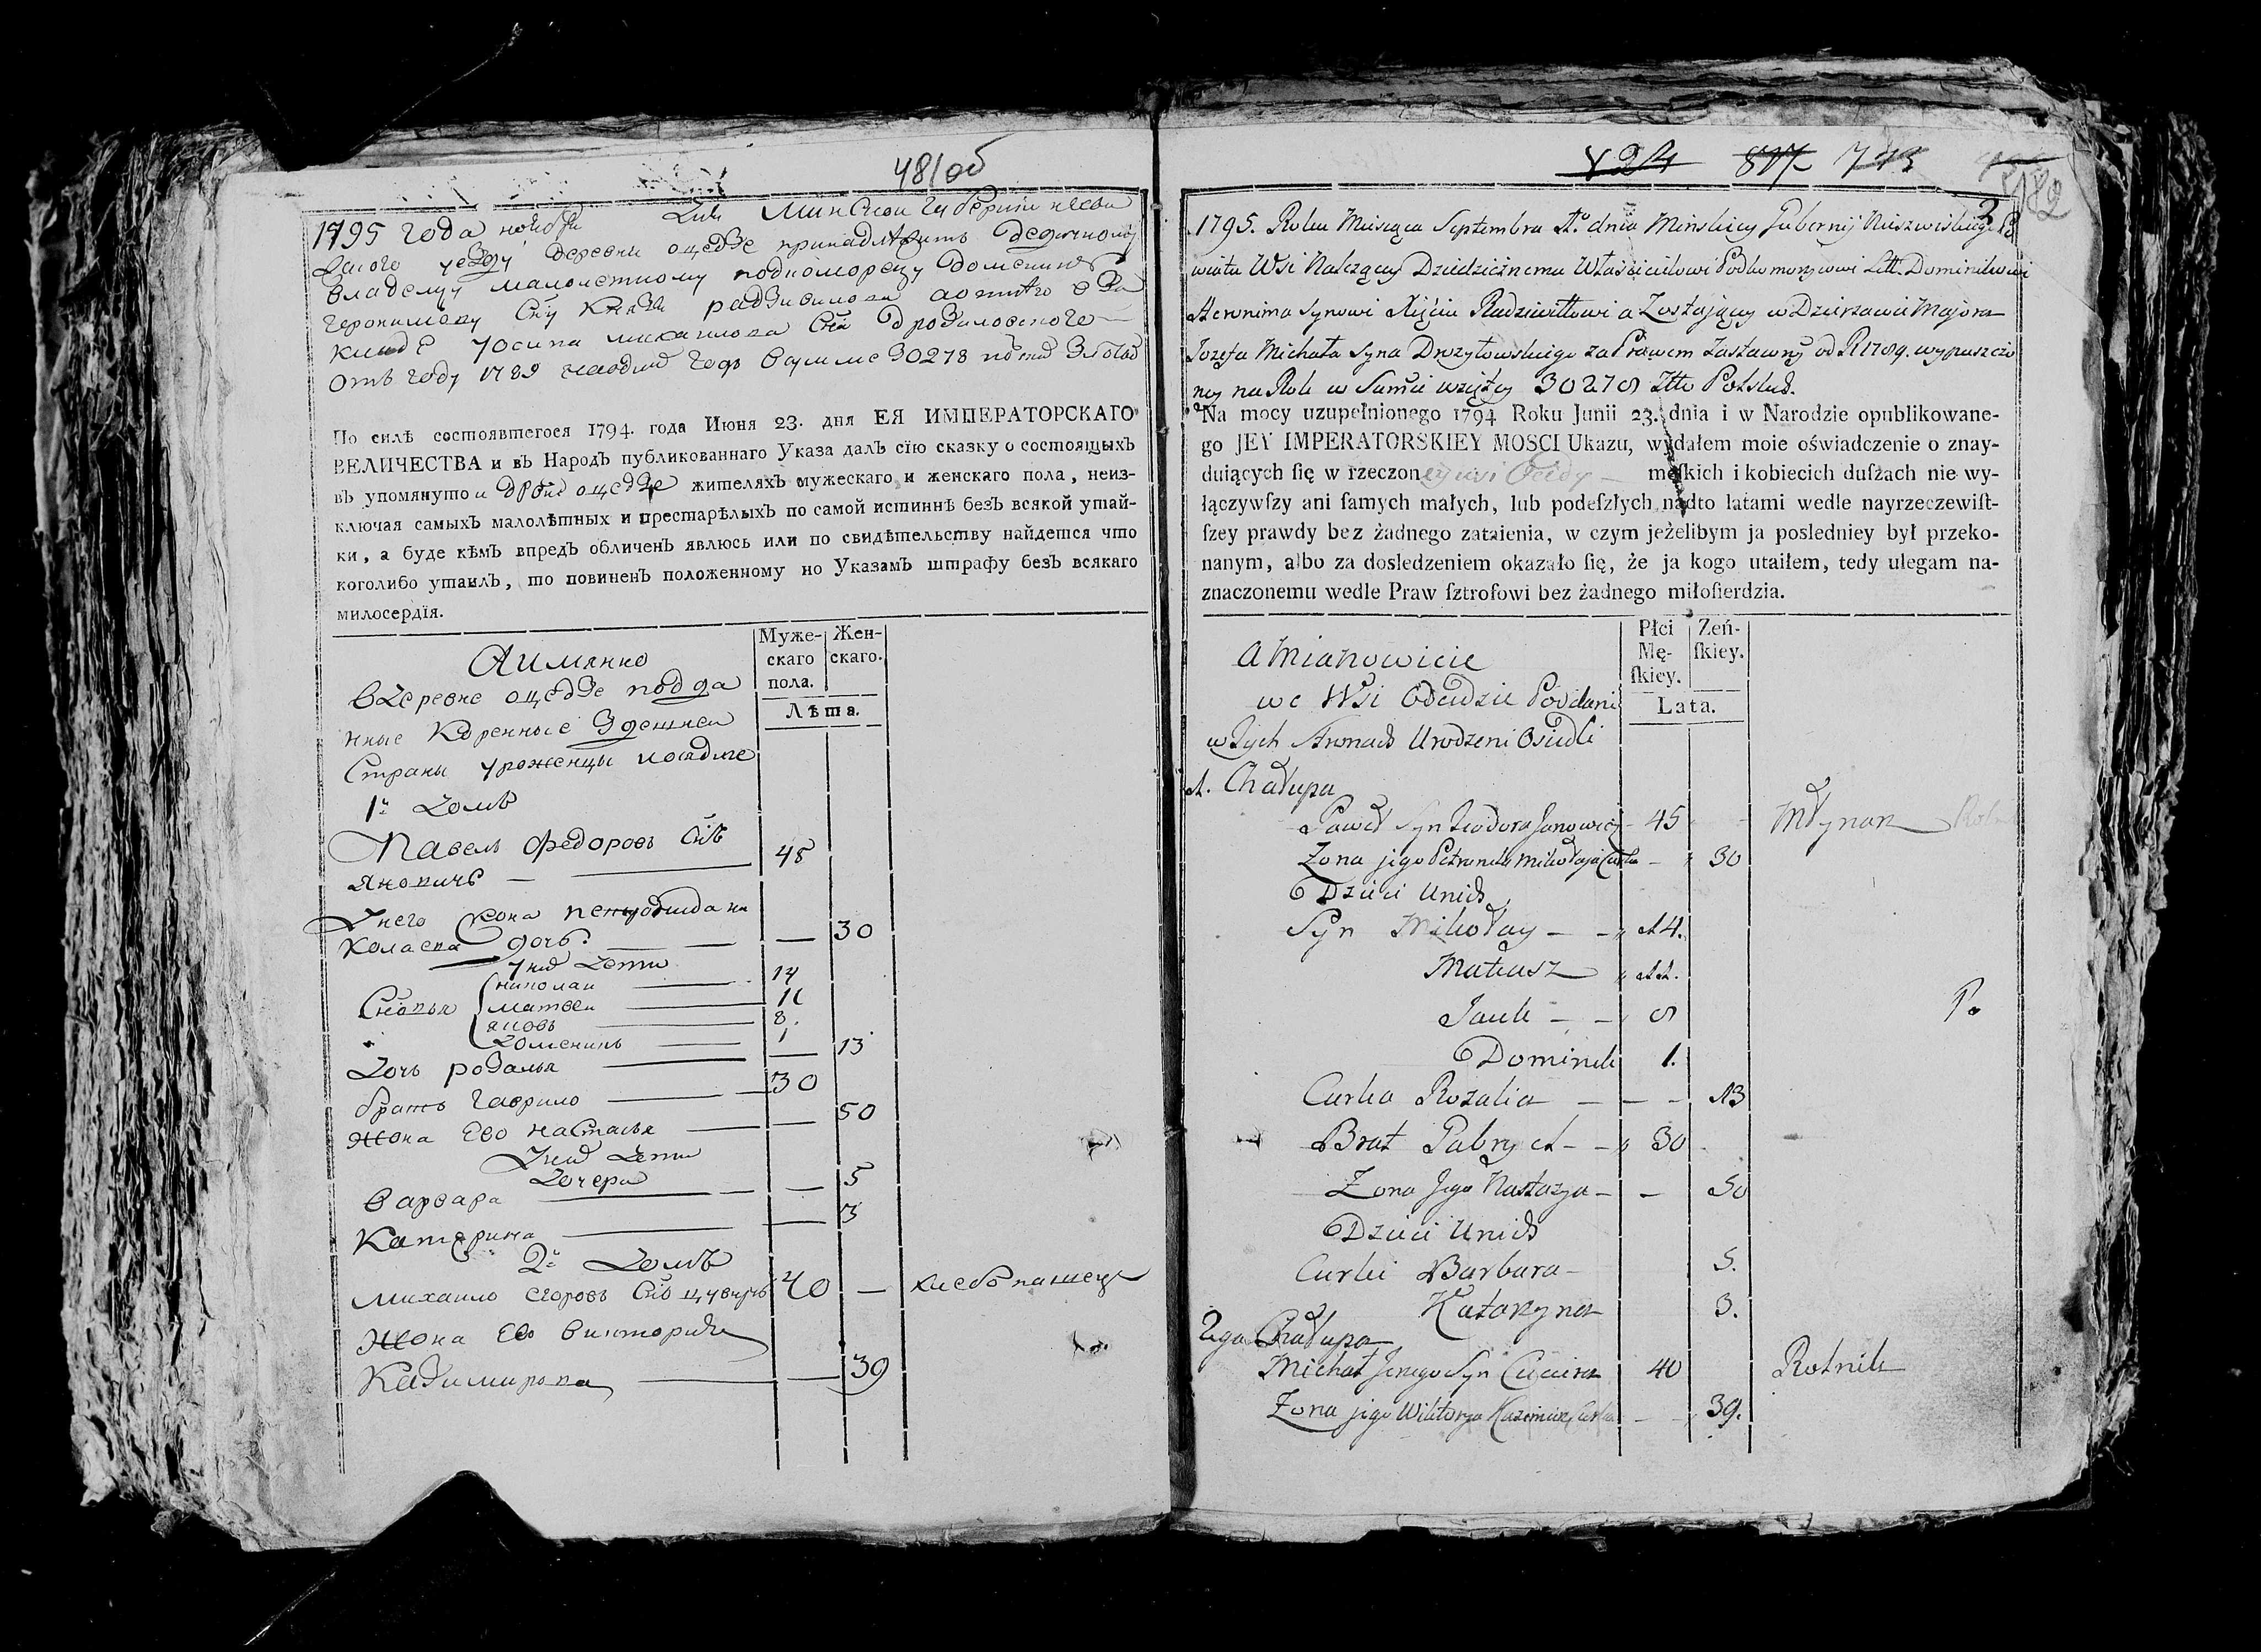 481об
1795 года ноября дня Минской губернии несви
жского уезду деревни оцедзе принадлежить дедичному
владелцу малолетному подкоморецу доминику
геронимову сну князя радзивилова
осипа михаилова сна дрозиловского
отъ году 1789 вsумме 30278
По силѣ состоявшегося 1794. года Июня 23. дня ЕЯ ИМПЕРАТОРСКАГО
ВЕЛИЧЕСТВА и въ Народъ публикованнаго Указа далъ сїю сказку о состоящыхъ
въ упомянутои дрвне оцедзе жителяхъ мужескаго и женскаго пола, неиз-
ключая самыхъ малолѣтныхъ и престарѣлыхъ по самой истиннѣ безъ всякой утай-
ки, а буде кѣмъ впредъ обличенъ явлюсь или по свидѣтельству найдется что
коголибо утаилъ, то повиненъ положенному по Указамъ штрафу безъ всякаго
милосердїя.
Муже-скаго пола. Жен-скаго.
Лѣта.
Аимянно
вдеревне оцедзе подда
нные коренные здешнеи
страны уроженцы
1й домъ
Павелъ федоровъ снъ
яновичъ — 45
Унего жона
колаева дочь — 30
Уних дети
Сновья николаи — 14
матвеи — 11
яковъ — 8.
доменикъ — 1
Дочь розалья — 13
братъ гаврило — 30
жона Ево настасья — 50
Уних дети
дочери
варвара — 5
Катерина — 3
2й домъ
михаило егоровъ снъ 40 — хлебопашецъ
жона Ево викторыя
Казимирова — 39
724 817 743
3
482
1795. Roku Miesiąca Septembra 1º. dnia Minskiey Gubernij Nieszwiskiego Po
wiatu Wsi Nalezącey Dziedzicznemu Właścicielowi Podkomorzycowi Litt. Dominikowi
Heronima Synowi Xięciu Radziwiłłowi a Zostaiącey w Dzierzawie Majora
Jozefa Michała Syna Drozyłowskiego za Prawem Zastawnym od R. 1789. wypuszczo
ney na Rok w Sumie wziętey 30278 Złto Polskich.
Na mocy uzupełnionego 1794 Roku Junii 23. dnia i w Narodzie opublikowane-
go JEY IMPERATORSKIEY MOSCI Ukazu, wydałem moie oświadczenie o znay-
duiących ſię w rzeczoney wsi Ocedy — męſkich i kobiecich duſzach nie wy-
łączywſzy ani ſamych małych, lub podeſzłych nadto latami wedle nayrzeczewiſt-
ſzey prawdy bez żadnego zataienia, w czym jeżelibym ja posledniey był przeko-
nanym, albo za dosledzeniem okazało ſię, że ja kogo utaiłem, tedy ulegam na-
znaczonemu wedle Praw ſztrofowi bez żadnego miłoſierdzia.
Płci Mę-ſkiey. Zeń-ſkiey.
Lata.
a Mianowicie
we Wsi Ocedzie Poddani
w tych Stronach Urodzeni Osiedli
1. Chałupa
Paweł Syn Teodora Janowicz — 45 Młynarz
Zona jego Petronela Mikołaja Curka — 30
Dzieci Unich
Syn Mikołay — 14.
Mateusz 11.
Jank — 8
Dominik 1.
Curka Rozalia — 13
Brat Gabryel — 30
Zona Jego Nastazya — 50
Dzieci Unich
Curki Barbara — 5.
Katarzyna 3.
2ga Chałupa
Michał Jerzego Syn 40 Rolnik
Zona jego Wiktorya Kazimierza Curka — 39.